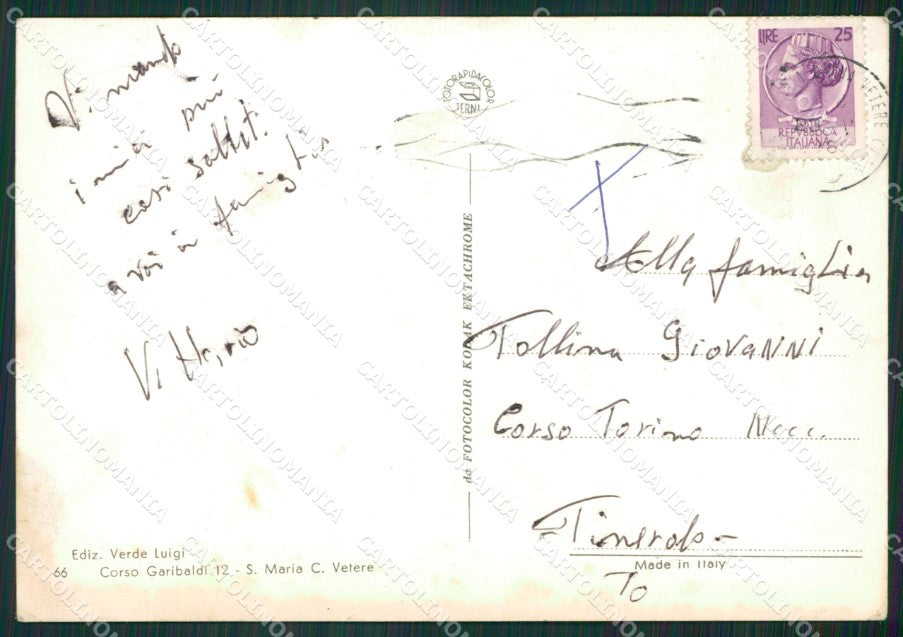 Vi mando
i miei più
cari saluti
a voi in famiglia
Vittorio
FOTORAPIDACOLOR
TERNI
da FOTOCOLOR KODAK EKTACHROME
LIRE 25
REPVBBLICA
ITALIANA
VETERE
Alla famiglia
Tollina GIOVANNI
Corso Torino
Pinerolo -
TO
Made in Italy
Ediz. Verde Luigi
66 Corso Garibaldi 12 - S. Maria C. Vetere
CARTOLINOMANIA